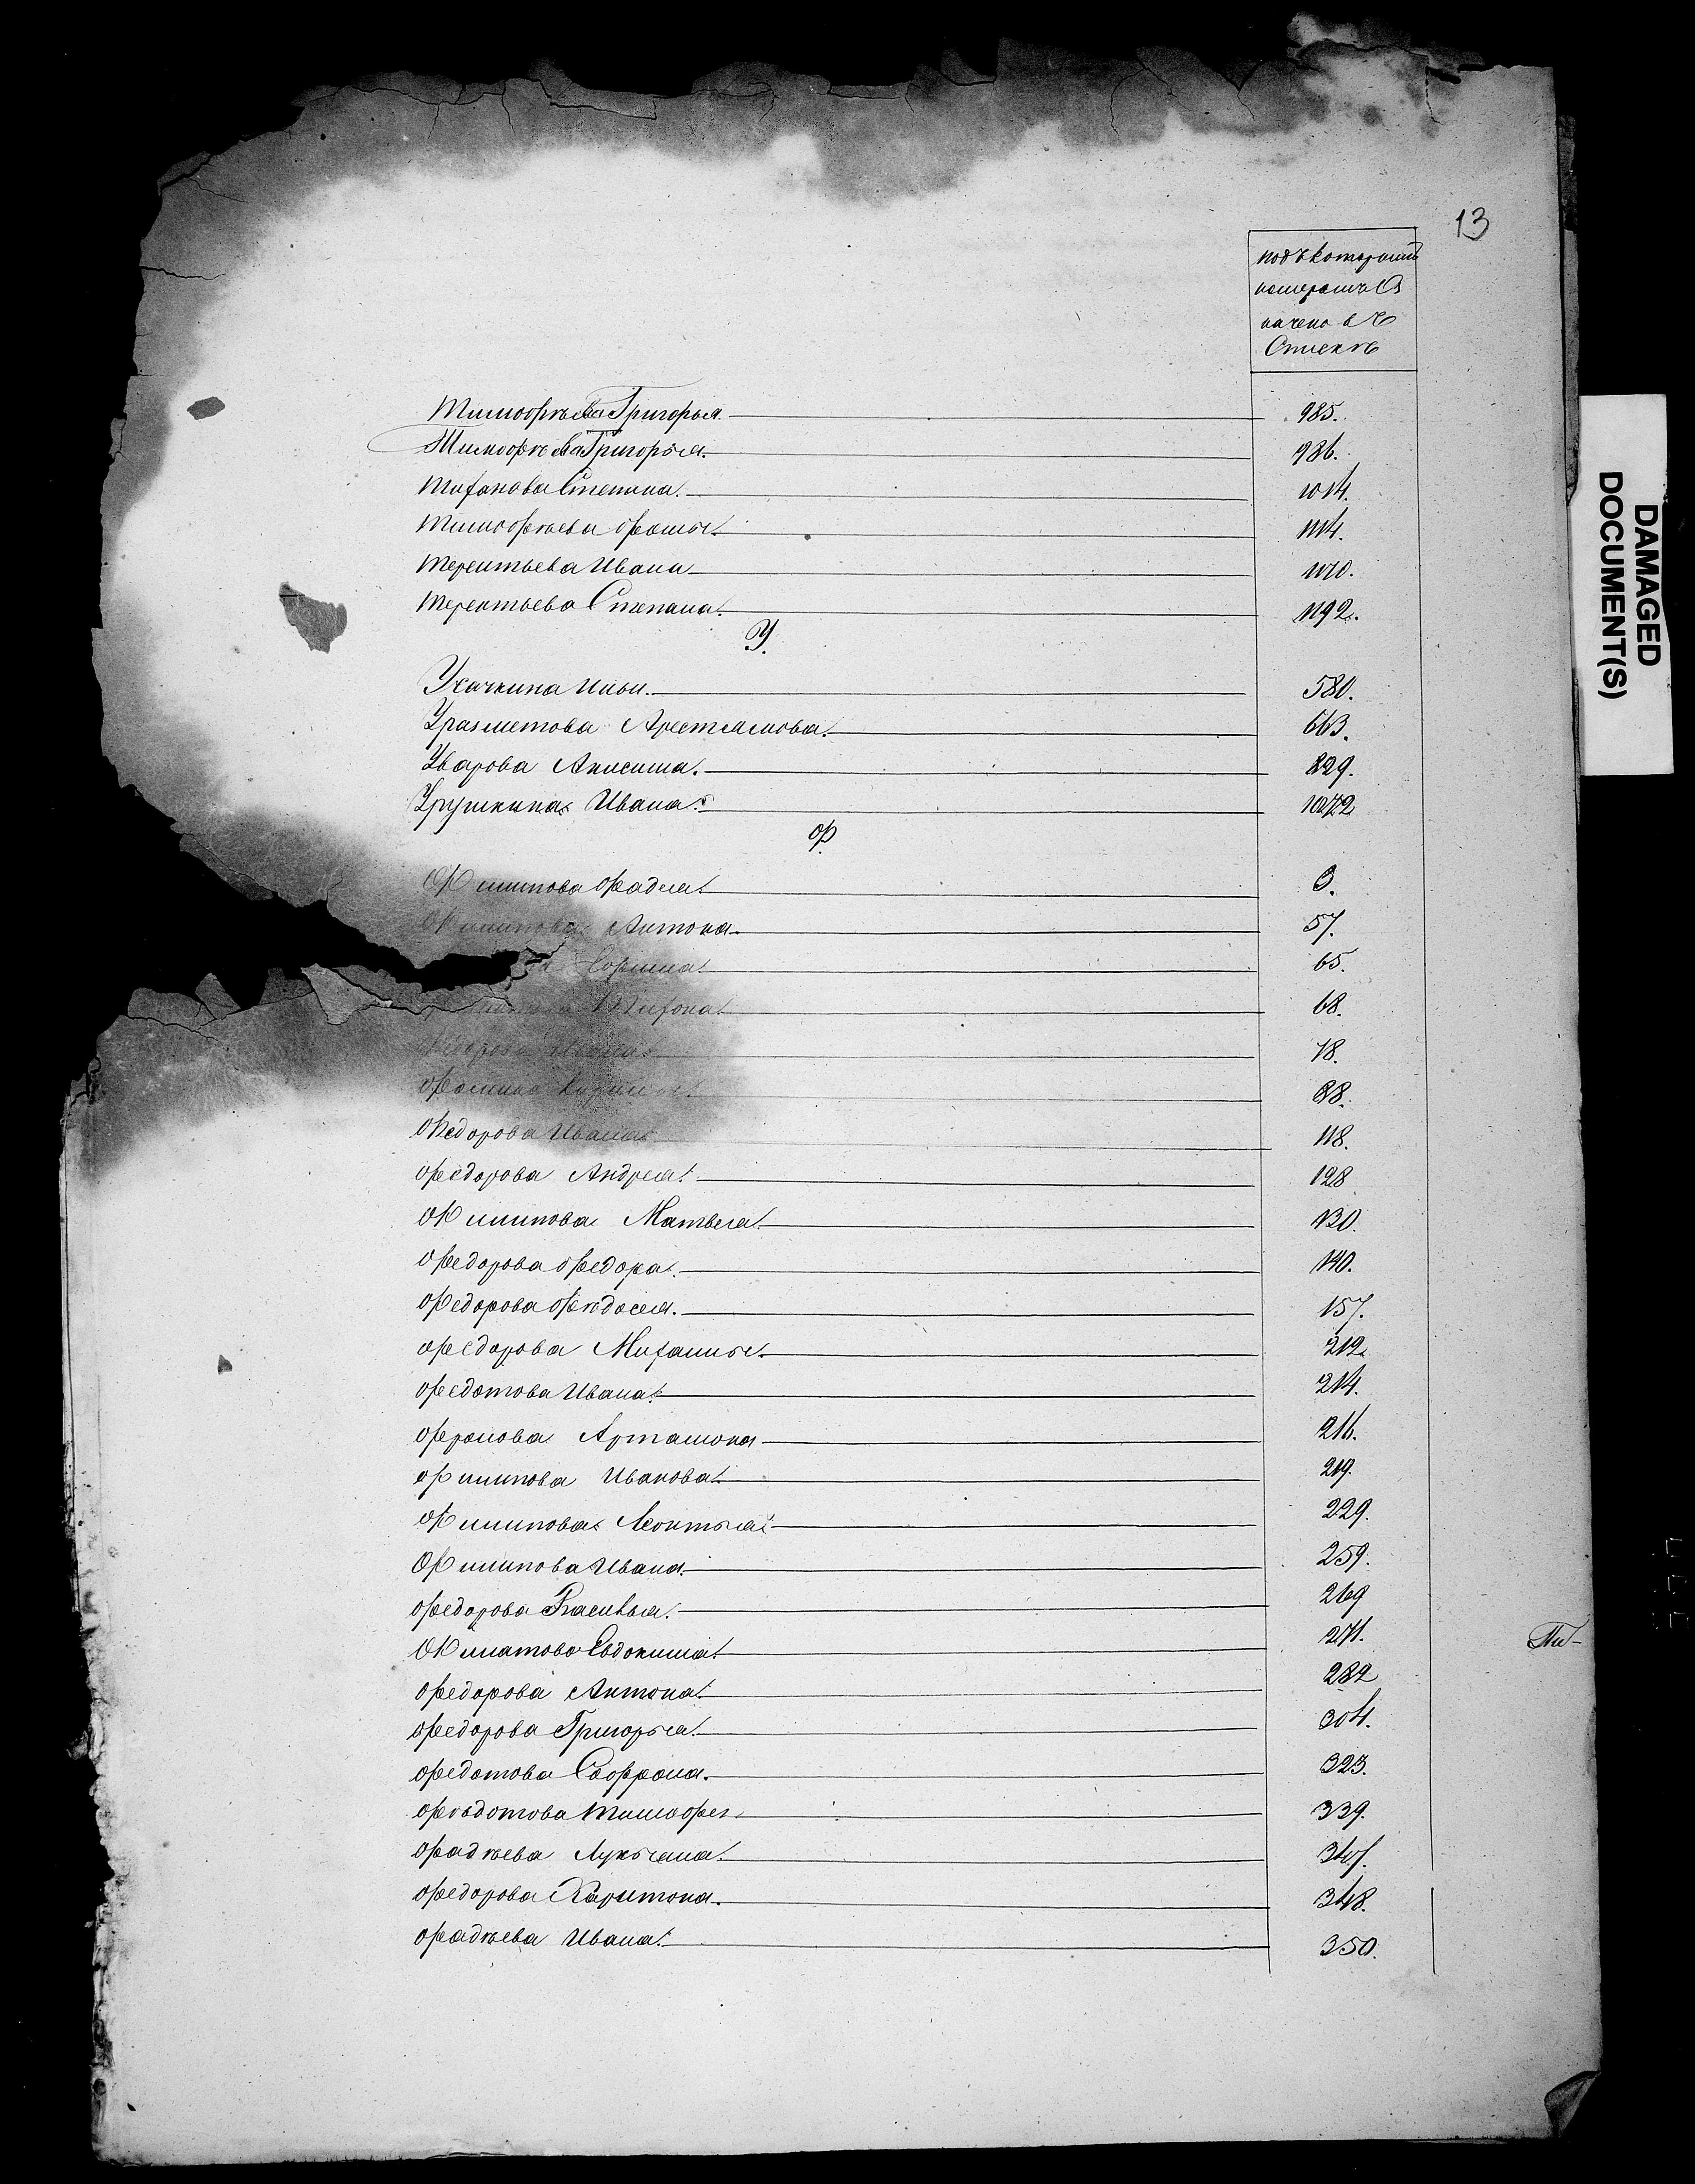 13
подъ которымъ
номеромъ Оз
начено въ
Спискѣ
Тимофѣева Григорья. 985.
Тимофѣева Григорья. 986.
Тиханова Степана. 1014.
Тимофѣева Фомы. 1114.
Терентьева Ивана 1170.
Терентьева Степана. 1192.
У.
Ухачкина Ильи. 580.
Уразметова Арестамова. 663.
Уварова Анисима. 829.
Урушкина Ивана. 1072
Ф.
Филипова Фадея. 3.
Филипова Антона. 57.
65.
68.
78.
Фомина 88.
Федорова Ивана 118.
Федорова Андрея. 128
Филипова Матвея. 130.
Федорова Федора. 140.
Федорова Фѣдосея. 157.
Федорова Михайлы. 212.
Федотова Ивана. 214.
Артамона 216.
Филипова Иванова. 219.
Филипова Леонтья. 229.
Филипова Ивана. 259.
Федорова Василья. 269
Филатова Евдокима. 271.
Федорова Антона. 282
Федорова Григорья. 304.
Федотова Софрона. 323.
Фѣдотова Тимофея 339.
Фадѣева Лукьяна. 347.
Федорова Харитона. 348.
Фадѣева Ивана. 350.
Ти-
DAMAGED
DOCUMENT(S)